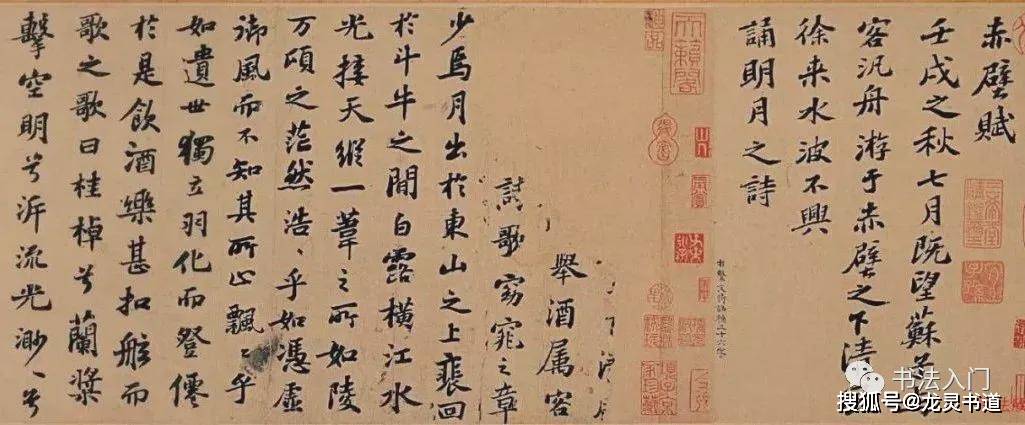 赤壁賦
壬戌之秋七月既望蘇子
客汎舟游于赤壁之下清
徐来水波不興
誦明月之詩
天籟閣
舉酒属客
歌窈窕之章
少焉月出於東山之上裴回
於斗牛之間白露横江水
光接天縱一葦之所如陵
万頃之茫然浩〻乎如馮虚
御風而不知其所止飄〻乎
如遺世獨立羽化而登僊
於是飲酒樂甚扣舷而
歌之歌曰桂棹兮蘭槳
擊空明兮泝流光渺〻兮
书法入门
搜狐号@龙灵书道